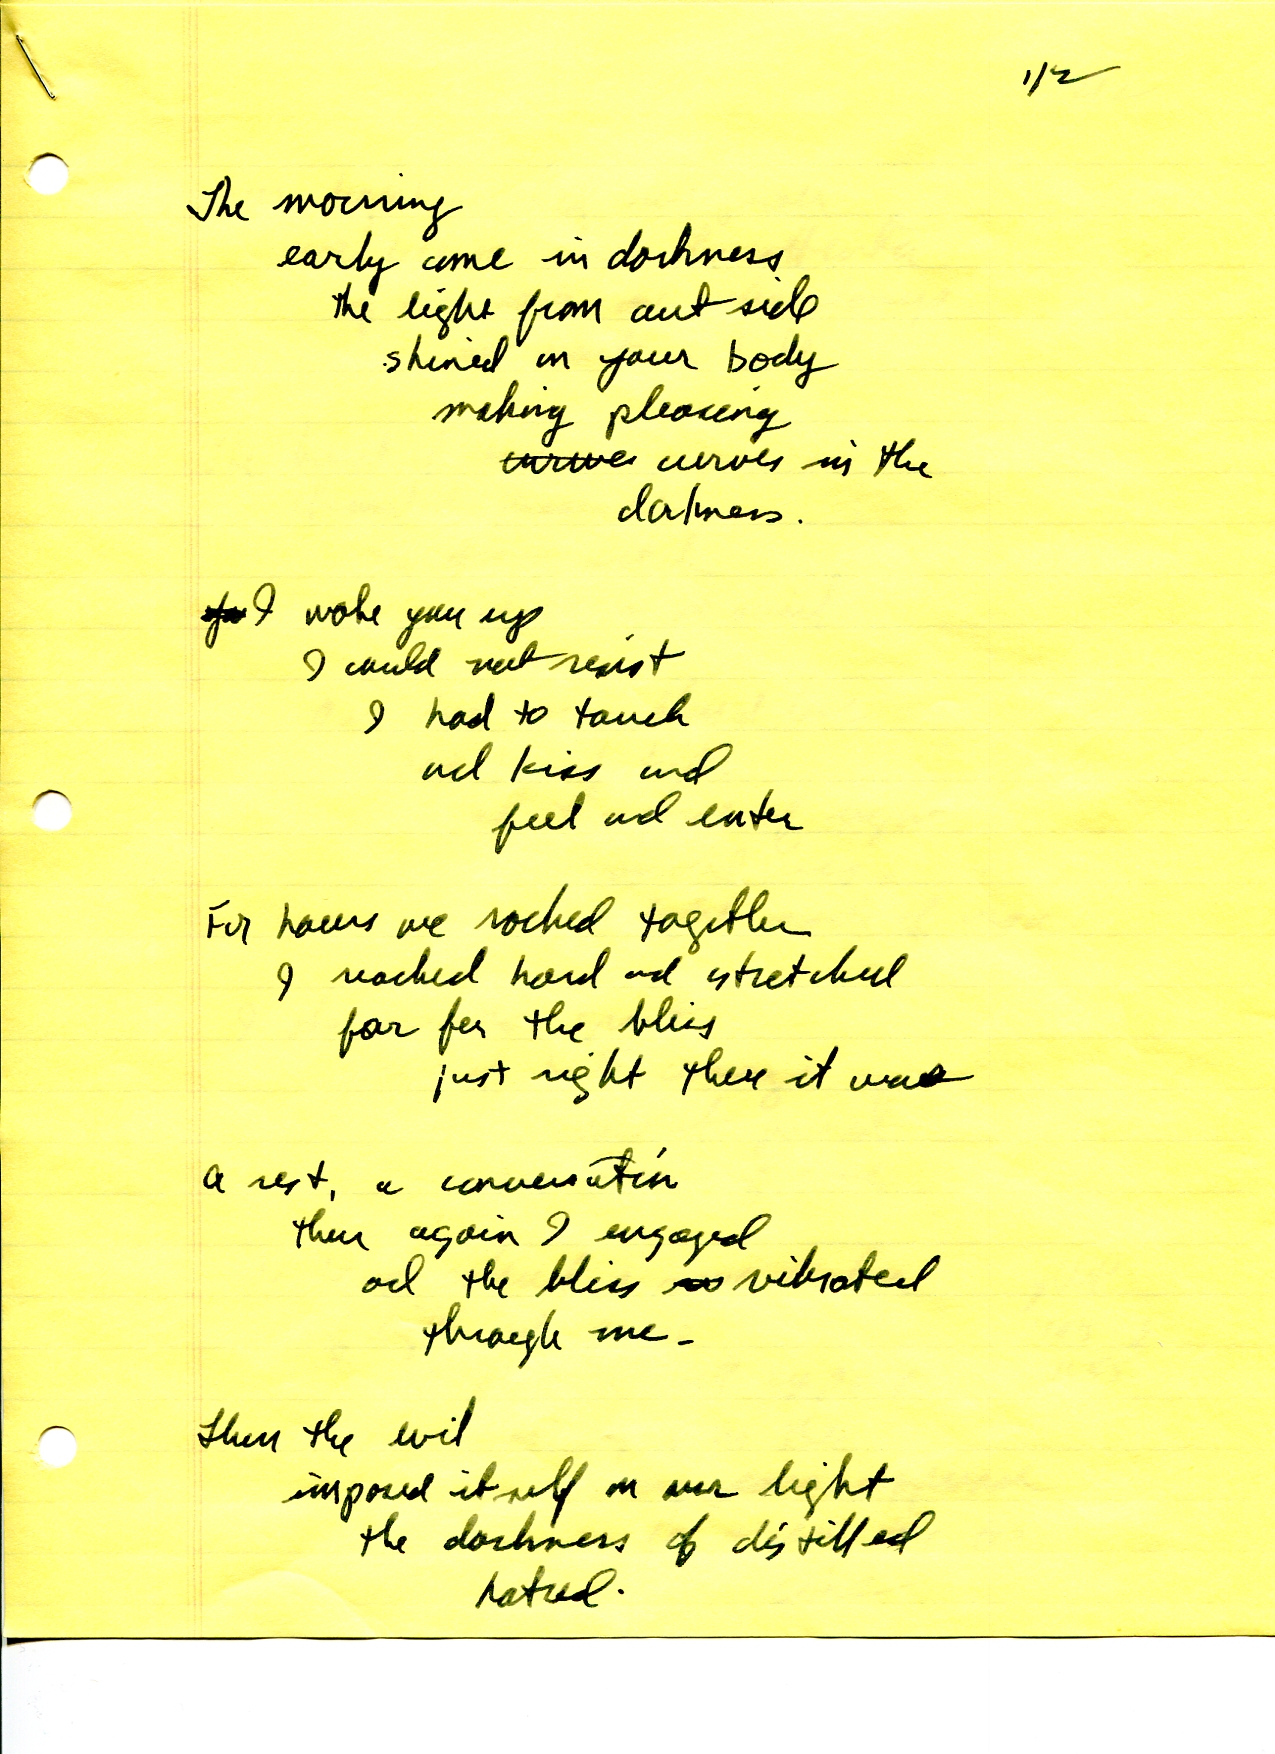 1/2
The morning
early come in darkness
the light from out side
shined on your body
making pleasing
curves curves in the
darkness.
I woke you up
I could not resist
I had to touch
and kiss and
feel and enter
For hours we rocked together
I reached hard and stretched
far for the bliss
just right there it was
a rest, a conversation
then again I engaged
and the bliss vibrated
through me -
Then the evil
imposed itself on our light
the darkness of distilled
hatred.